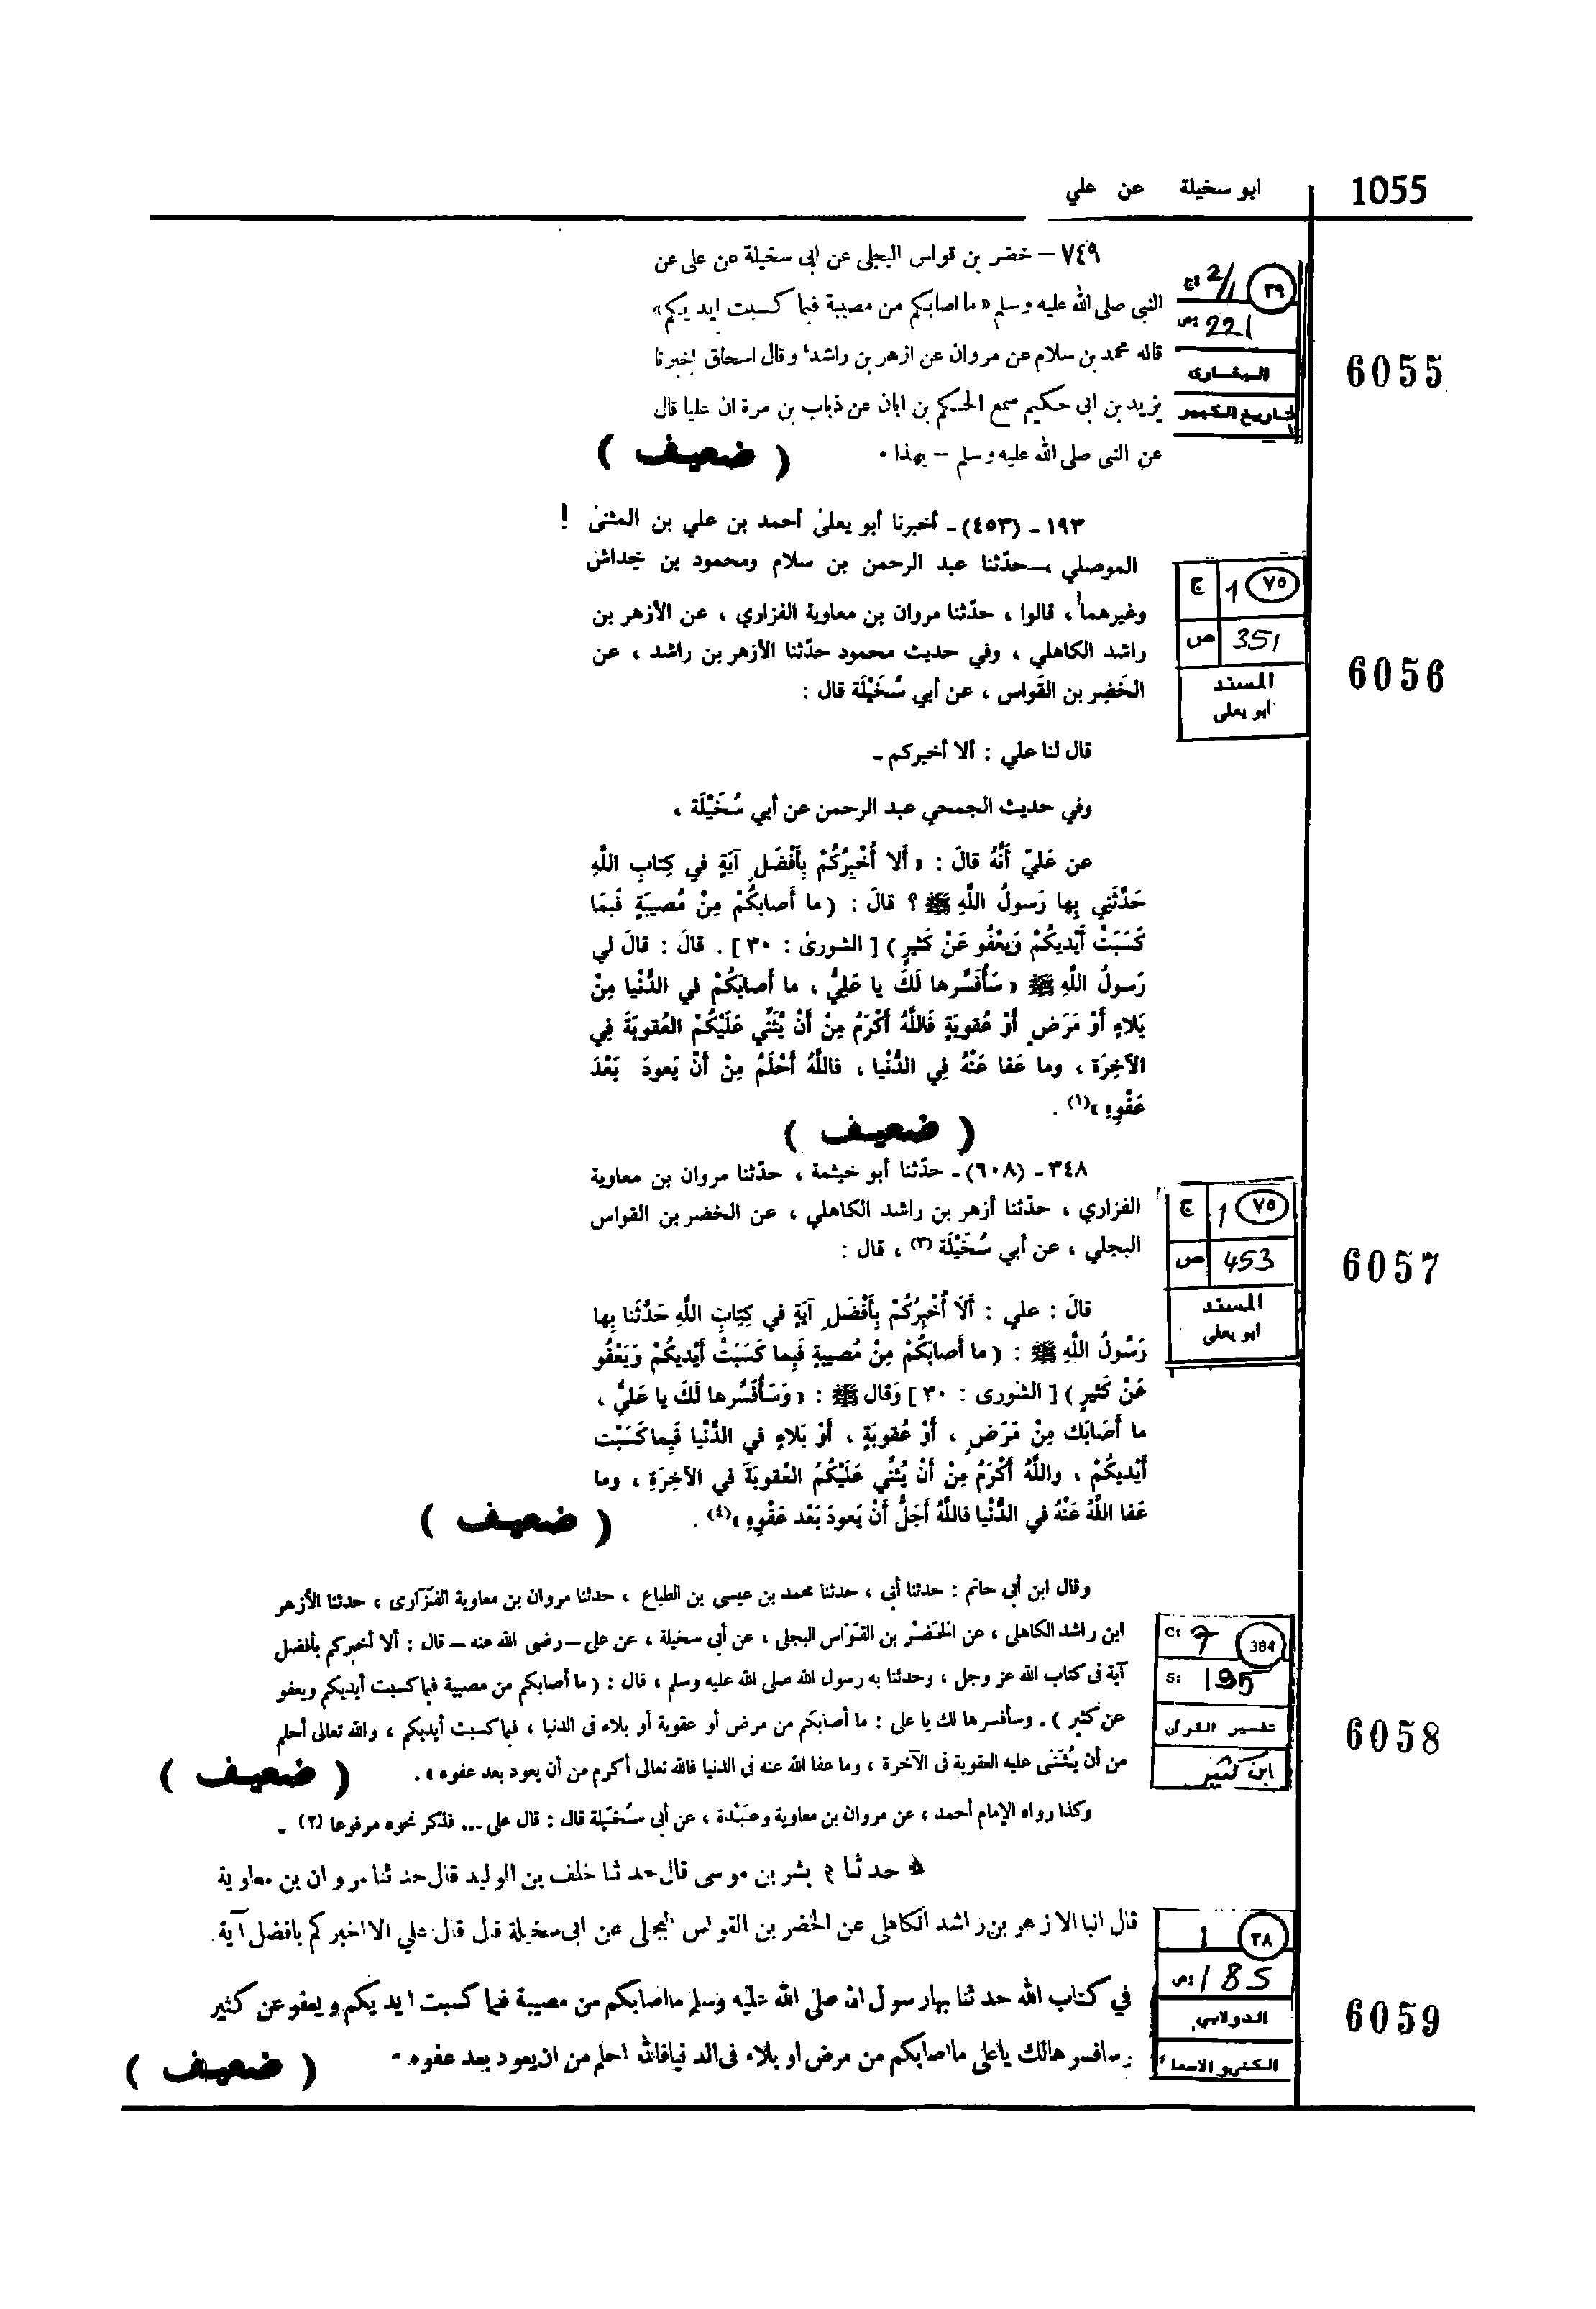 1055
ابو سخيلة عن علي
٧٤٩ – خضر بن قواس البجلى عن ابى سخيلة عن على عن
النبى صلى الله عليه وسلم « ما اصابكم من مصيبة فبما كسبت ايديكم»
قاله محمد بن سلام عن مروان عن ازهر بن راشد، وقال اسحاق اخبرنا
يزيد بن ابى حكيم سمع الحكم بن ابان عن ذباب بن مرة ان عليا قال
عن النبى صلى الله عليه وسلم – بهذا ٠
( ضعيف )
٣٩ ج: 2/1
ص: 221
البخارى
التاريخ الكبير
6055
١٩٣ - (٤٥٣) - أخبرنا أبو يعلىٰ أحمد بن علي بن المثنىٰ
الموصلي ، حدّثنا عبد الرحمن بن سلام ومحمود بن خِداش
وغيرهما ، قالوا ، حدّثنا مروان بن معاوية الفزاري ، عن الأزهر بن
راشد الكاهلي ، وفي حديث محمود حدّثنا الأزهر بن راشد ، عن
الخَضِر بن القَواس ، عن أبي سُخَيْلَة قال :
قال لنا علي : ألا أخبركم -
وفي حديث الجمحي عبد الرحمن عن أبي سُخَيْلَة ،
عن عَليّ أَنَّهُ قالَ : « أَلا أُخْبِرُكُمْ بِأَفْضَلِ آيَةٍ في كِتابِ اللَّهِ
حَدَّثَنِي بِها رَسولُ اللَّهِ ﷺ ؟ قالَ : ( ما أَصابَكُمْ مِنْ مُصيبَةٍ فَبِمَا
كَسَبَتْ أَيْديكُمْ وَيَعْفُو عَنْ كَثيرٍ ) [ الشورىٰ : ٣٠ ] . قالَ : قالَ لي
رَسولُ اللَّهِ ﷺ « سَأُفَسِّرها لَكَ يا عَلِيُّ ، ما أَصابَكُمْ في الدُّنْيا مِنْ
بَلاءٍ أَوْ مَرَضٍ أَوْ عُقوبَةٍ فَاللَّهُ أَكْرَمُ مِنْ أَنْ يُثَنِّي عَلَيْكُمْ العُقوبَةَ فِي
الآخِرَة ، وما عَفا عَنْهُ فِي الدُّنْيا ، فاللَّهُ أَحْلَمُ مِنْ أَنْ يَعودَ بَعْدَ
عَفْوِهِ »(١) .
( ضعيف )
ج 1 ٧٥
ص 351
المسند
ابو يعلى
6056
٣٤٨ - (٦٠٨) - حدّثنا أبو خيثمة ، حدّثنا مروان بن معاوية
الفزاري ، حدّثنا أزهر بن راشد الكاهلي ، عن الخضر بن القواس
البجلي ، عن أبي سُخَيْلَة (٣) ، قال :
قالَ : علي : أَلَا أُخْبِرُكُمْ بِأَفْضَلِ آيَةٍ في كِتابِ اللَّهِ حَدَّثَنا بِها
رَسُولُ اللَّهِ ﷺ : ( ما أَصابَكُمْ مِنْ مُصيبةٍ فَبِما كَسَبَتْ أَيْديكُمْ وَيَعْفُو
عَنْ كَثيرٍ ) [ الشورى : ٣٠ ] وَقال ﷺ : « وَسَأُفَسِّرها لَكَ يا عَليُّ ،
ما أَصَابَك مِنْ مَرَضٍ ، أَوْ عُقوبَةٍ ، أَوْ بَلاءٍ في الدُّنْيا فَبِما كَسَبَت
أَيْديكُمْ ، واللَّهُ أَكْرَمُ مِنْ أَنْ يُثَنِّي عَلَيْكُمُ العُقوبَةَ في الآخِرَةِ ، وما
عَفا اللَّهُ عَنْهُ في الدُّنْيا فاللَّهُ أَجَلُّ أَنْ يَعودَ بَعْد عَفْوِهِ »(٤) .
( ضعيف )
ج 1 ٧٥
ص 453
المسند
أبو يعلى
6057
وقال ابن أبى حاتم : حدثنا أبى ، حدثنا محمد بن عيسى بن الطباع ، حدثنا مروان بن معاوية الفَزَارى ، حدثنا الأزهر
ابن راشد الكاهلى ، عن الخَضْر بن القَوّاس البجلى ، عن أبى سخيلة ، عن على – رضى الله عنه – قال : ألا أخبركم بأفضل
آية فى كتاب الله عز وجل ، وحدثنا به رسول الله صلى الله عليه وسلم ، قال : ( ما أصابكم من مصيبة فبما كسبت أيديكم ويعفو
عن كثير ) . وسأفسرها لك يا على : ما أصابكم من مرض أو عقوبة أو بلاء فى الدنيا ، فبما كسبت أيديكم ، والله تعالى أحلم
من أن يُثَنى عليه العقوبة فى الآخرة ، وما عفا الله عنه فى الدنيا فالله تعالى أكرم من أن يعود بعد عفوه » .
( ضعيف )
وكذا رواه الإمام أحمد ، عن مروان بن معاوية وعَبْدة ، عن أبى سُخَيلة قال : قال على ... فذكر نحوه مرفوعا (٢) -
C: 7 384
S: 195
تفسير القرآن
ابن كثير
6058
حدثنا بشر بن موسى قال حدثنا خلف بن الوليد قال حدثنا مروان بن معاوية
قال انبا الازهر بن راشد الكاهلى عن الخضر بن القواس البجلى عن ابى سخيلة قال قال علي الا اخبركم بافضل آية
في كتاب الله حدثنا بها رسول الله صلى الله عليه وسلم ما اصابكم من مصيبة فبما كسبت ايديكم ويعفو عن كثير
وسافسرها لك ياعلى ما اصابكم من مرض او بلاء فى الدنيا فالله احلم من ان يعود بعد عفوه -
( ضعيف )
1 ٣٨
ص: 185
الدولابي
الكنى و الاسماء
6059